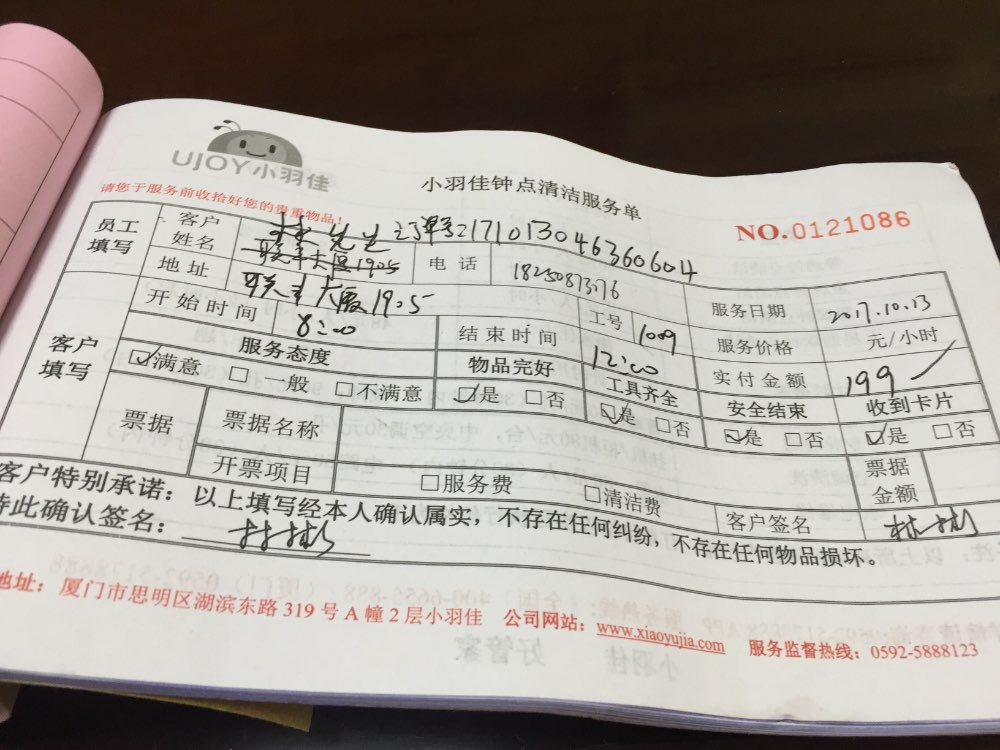 UJOY小羽佳
小羽佳钟点清洁服务单
请您于服务前收拾好您的贵重物品！
NO.0121086
员工填写 客户姓名 林先生 订单号:171013046360604
地址 联丰大厦1905 电话 18250873176 服务日期 2017.10.13
联丰大厦1905
开始时间 8:00 结束时间 12:00 工号 1009 服务价格 元/小时
客户填写 服务态度 物品完好 工具齐全 实付金额 199
☑满意 □一般 □不满意 ☑是 □否 ☑是 □否 安全结束 收到卡片
☑是 □否 ☑是 □否
票据 票据名称 票据金额
开票项目 □服务费 □清洁费
客户特别承诺：以上填写经本人确认属实，不存在任何纠纷，不存在任何物品损坏。
特此确认签名： 客户签名
地址：厦门市思明区湖滨东路319号A幢2层小羽佳 公司网站：www.xiaoyujia.com 服务监督热线：0592-5888123